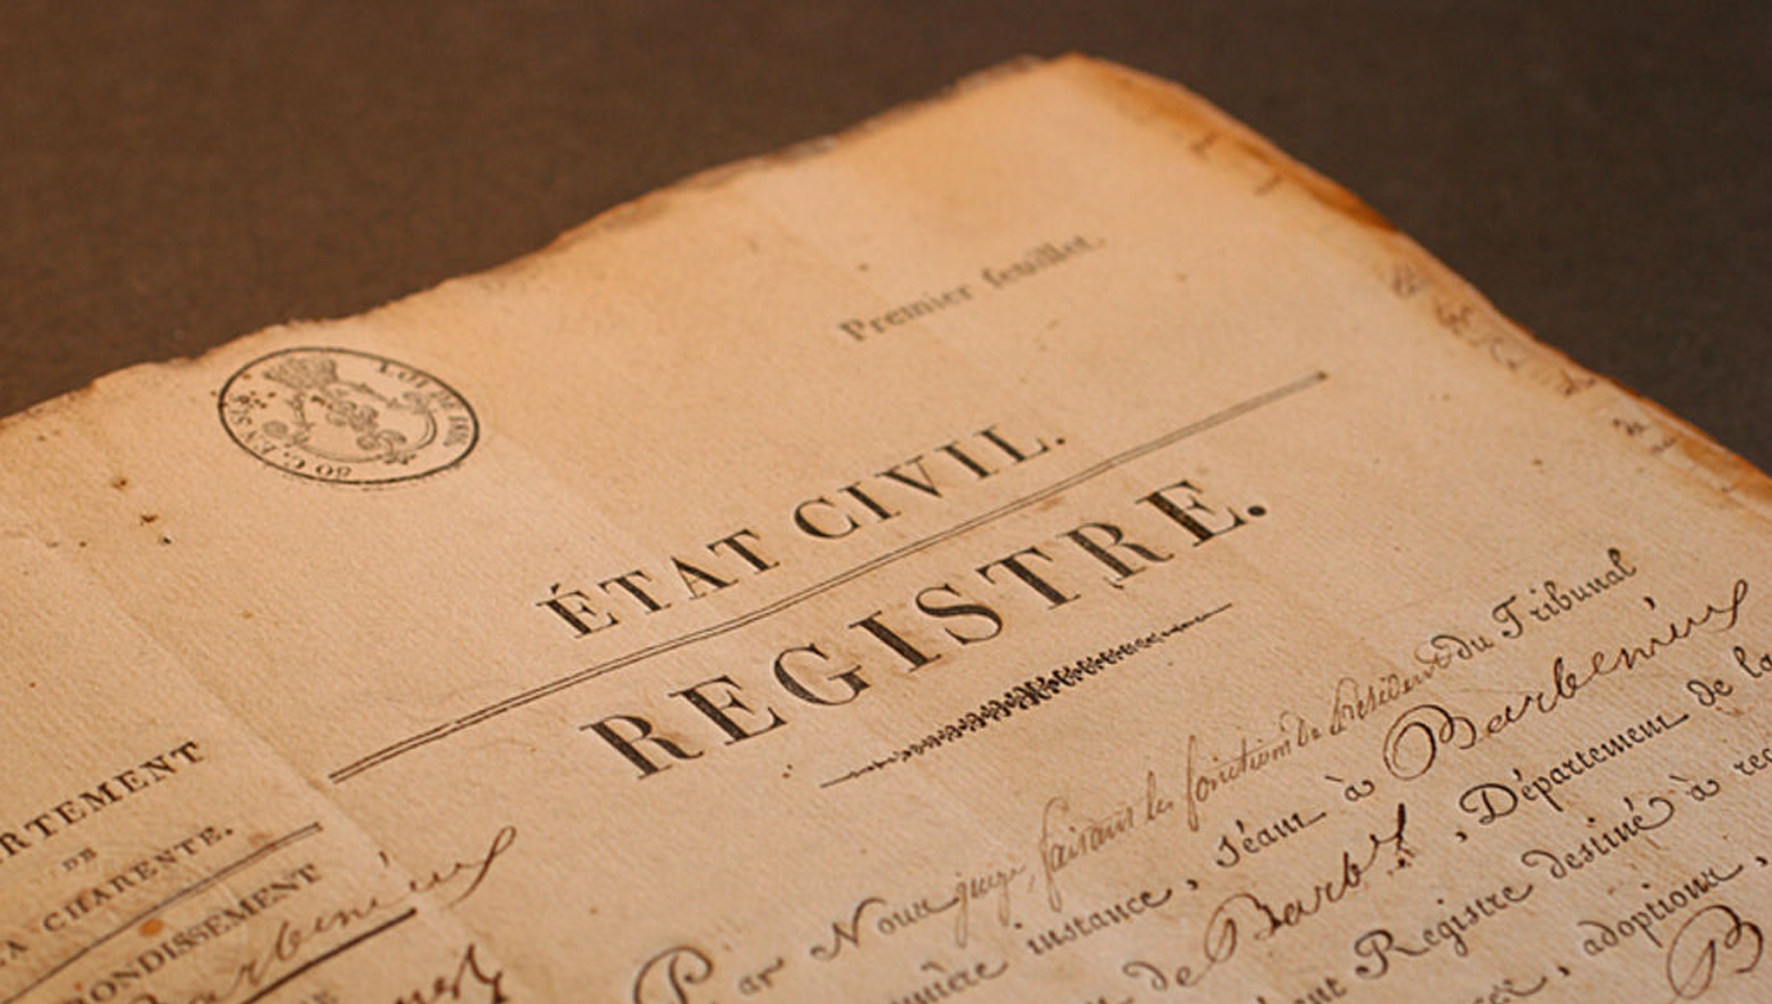 Premier feuillet.
ÉTAT CIVIL.
REGISTRE.
RTEMENT
DE
A CHARENTE.
ONDISSEMENT
Par Nous juge, faisant les fonctions de Président du Tribunal
instance, séant à Barbezieux
de Barbz, Département de la
Registre destiné à rec
, adoptions,
B